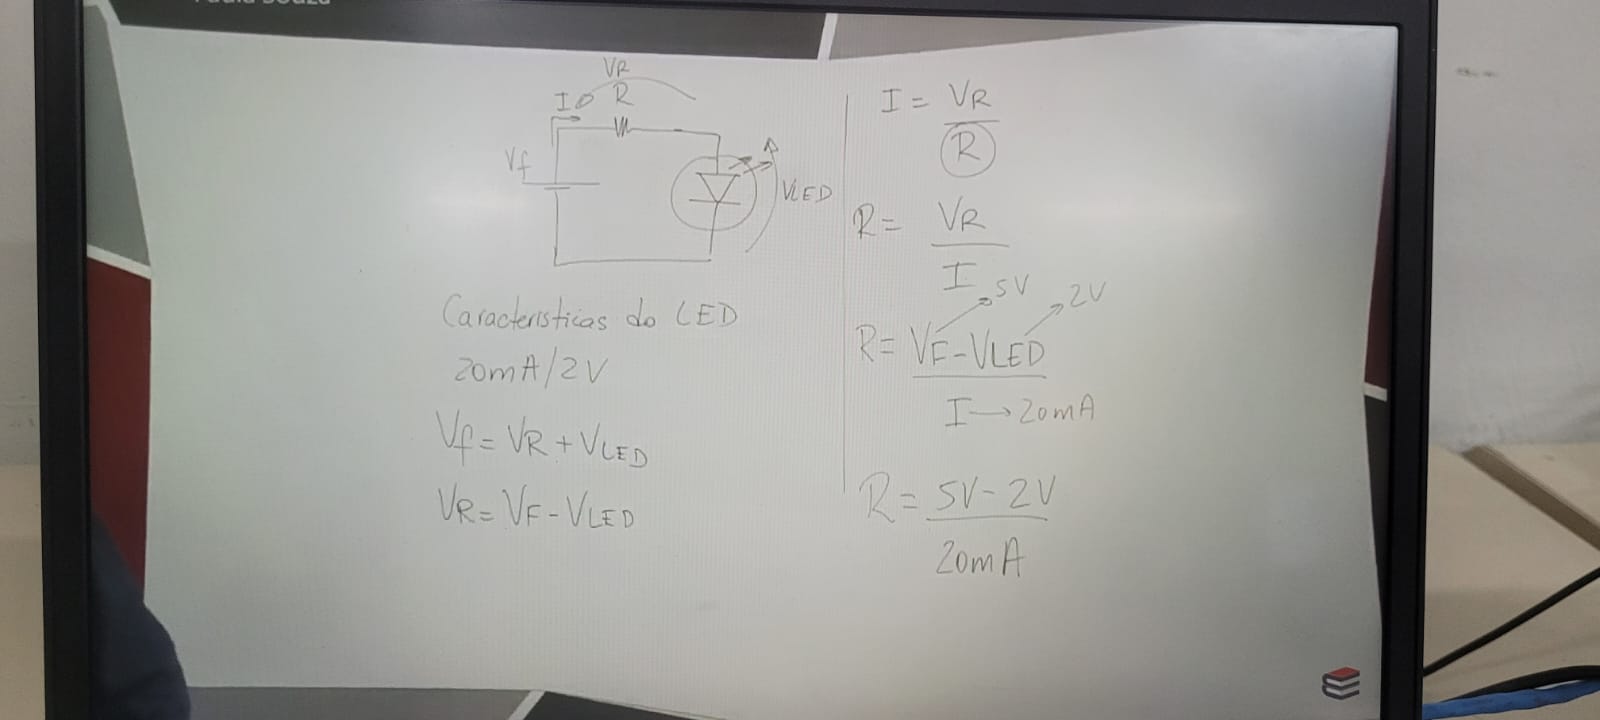 VR
I R
Vf
VLED
Características do LED
20mA/2V
Vf = VR + VLED
VR = VF - VLED
I = VR
R
R = VR
I
5V
2V
R = VF - VLED
I → 20mA
R = 5V - 2V
20mA